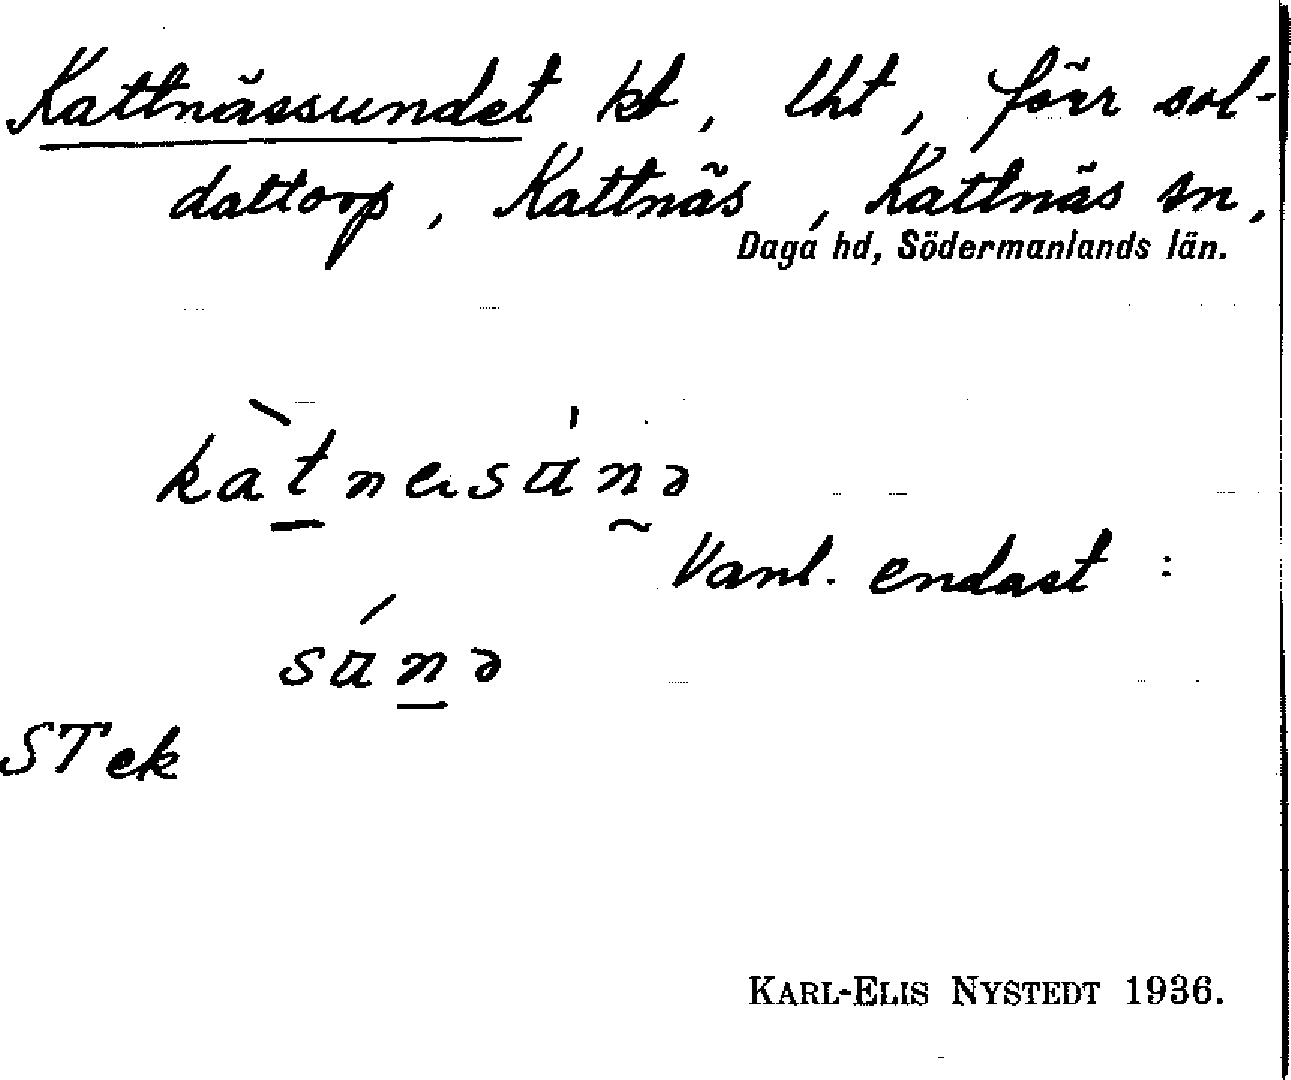 Kattnässundet kt, lht, förr sol-
dattorp, Kattnäs, Kattnäs sn,
Daga hd, Södermanlands län.
kàtnesúnə
Vanl. endast:
súnə
STek
KARL-ELIS NYSTEDT 1936.